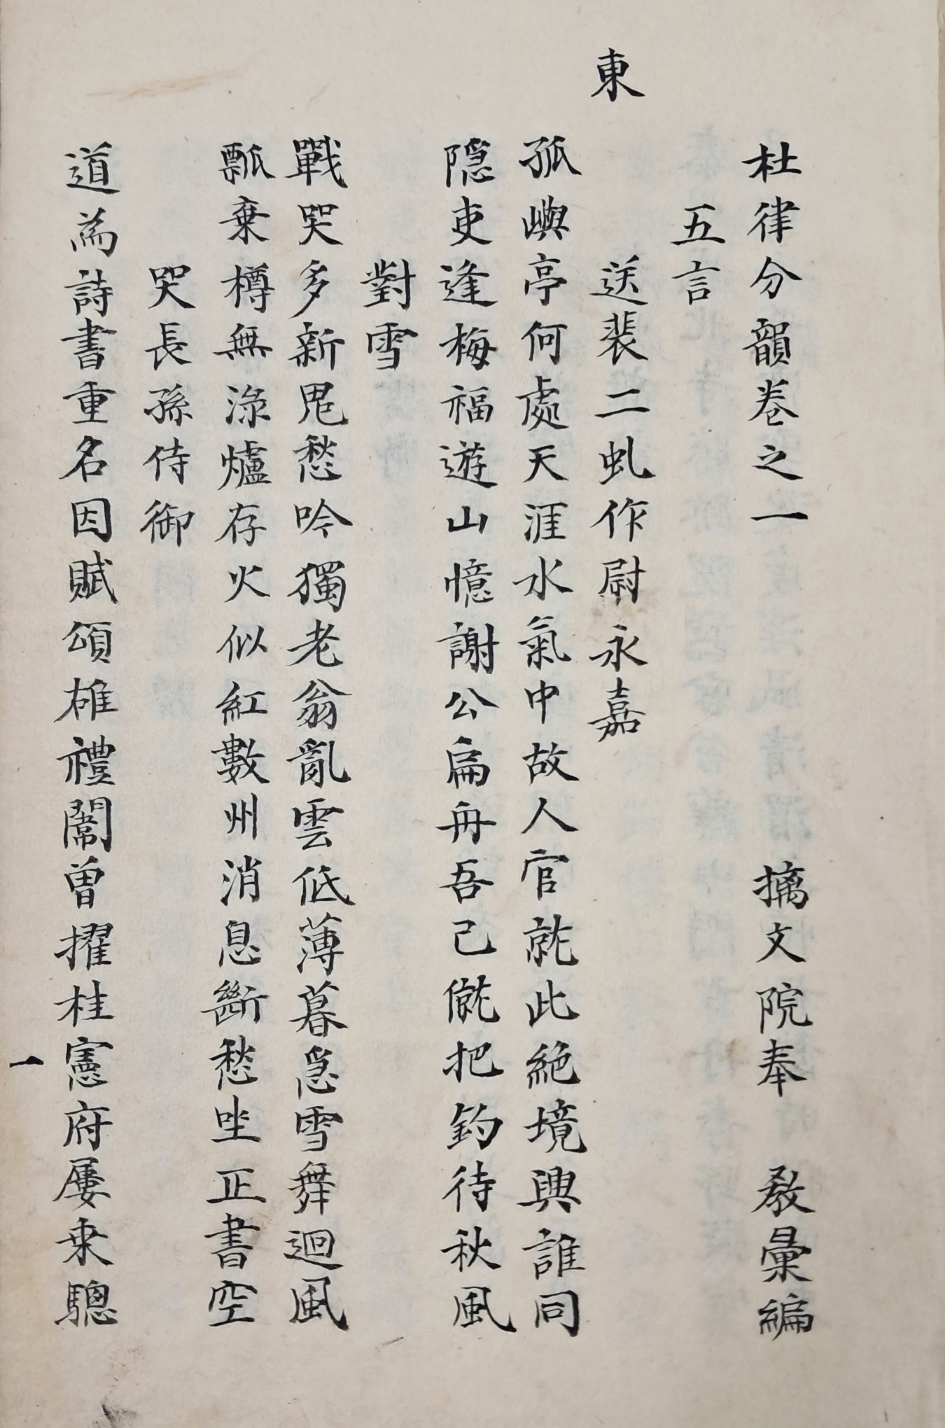 杜律分韻卷之一 摛文院奉 教彙編
五言
東
送裴二虬作尉永嘉
孤嶼亭何處天涯水氣中故人官就此絕境興誰同
隱吏逢梅福遊山憶謝公扁舟吾已僦把釣待秋風
對雪
戰哭多新鬼愁吟獨老翁亂雲低薄暮急雪舞迴風
瓢棄樽無淥爐存火似紅數州消息斷愁坐正書空
哭長孫侍御
道為詩書重名因賦頌雄禮闈曾擢桂憲府屢乘驄
一